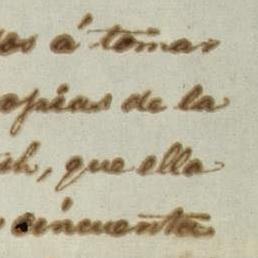 dos á tomar
opias de la
ish, que ella
cincuenta